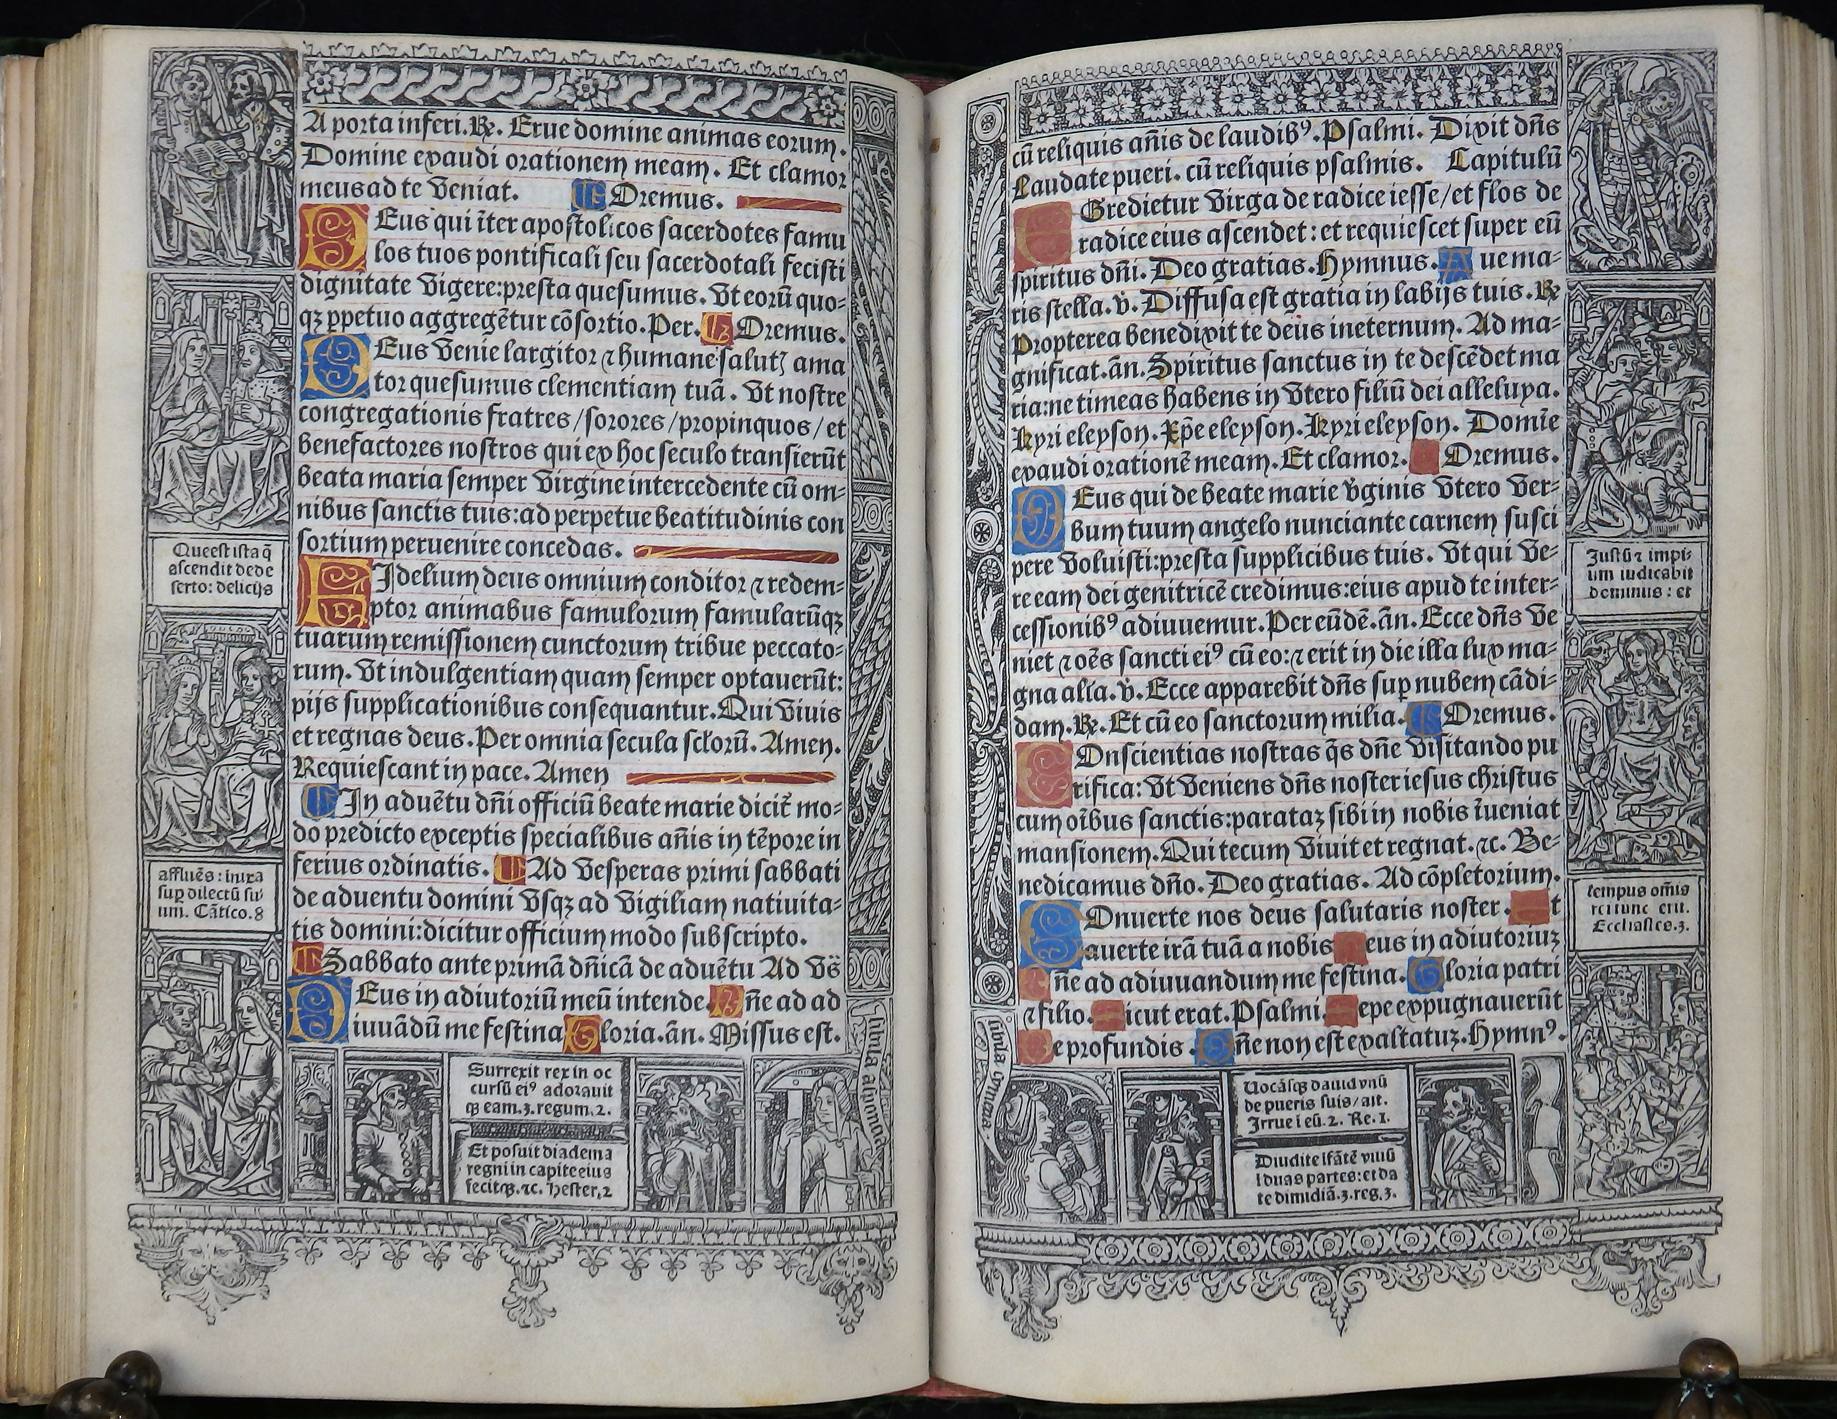 A porta inferi. ℞. Erue domine animas eorum.
Domine exaudi orationem meam. Et clamor
meus ad te veniat. Oremus.
DEus qui īter apostolicos sacerdotes famu
los tuos pontificali seu sacerdotali fecisti
dignitate vigere: presta quesumus. Vt eorū quo-
qꝫ ꝑpetuo aggregētur cōsortio. Per. Oremus.
DEus venie largitor ⁊ humane salutꝭ ama
tor quesumus clementiam tuā. Vt nostre
congregationis fratres / sorores / propinquos / et
benefactores nostros qui ex hoc seculo transierūt
beata maria semper virgine intercedente cū om-
nibus sanctis tuis: ad perpetue beatitudinis con
sortium peruenire concedas.
FIdelium deus omnium conditor ⁊ redem-
ptor animabus famulorum famularūqꝫ
tuarum remissionem cunctorum tribue peccato-
rum. Vt indulgentiam quam semper optauerūt:
pijs supplicationibus consequantur. Qui viuis
et regnas deus. Per omnia secula sclorū. Amen.
Requiescant in pace. Amen
In aduētu dn̄i officiū beate marie dicit̄ mo-
do predicto exceptis specialibus an̄is in tēpore in
ferius ordinatis. Ad vesperas primi sabbati
de aduentu domini vsqꝫ ad vigiliam natiuita-
tis domini: dicitur officium modo subscripto.
Sabbato ante primā dn̄icā de aduētu Ad vs̄
DEus in adiutoriū meū intende. Dn̄e ad ad
iuuādū me festina Gloria. an̄. Missus est.
Que est ista q̄
ascendit de de
serto: delicijs
affluēs: inixa
suꝑ dilectū su
um. Cātico. 8
Surrexit rex in oc
cursū eiꝰ adorauit
qꝫ eam. 3. regum. 2.
Et posuit diadema
regni in capite eius
fecitqꝫ. ⁊c. Hester. 2
cū reliquis an̄is de laudibꝰ. Psalmi. Dixit dn̄s
Laudate pueri. cū reliquis psalmis. Capitulū
EGredietur virga de radice iesse / et flos de
radice eius ascendet: et requiescet super eū
spiritus dn̄i. Deo gratias. Hymnus. Aue ma-
ris stella. v̄. Diffusa est gratia in labijs tuis. ℞
Propterea benedixit te deus in eternum. Ad ma-
gnificat. an̄. Spiritus sanctus in te descēdet ma
ria: ne timeas habens in vtero filiū dei alleluya.
Kyri eleyson. Xp̄e eleyson. Kyri eleyson. Domīe
exaudi orationē meam. Et clamor. Oremus.
DEus qui de beate marie v̄ginis vtero ver-
bum tuum angelo nunciante carnem susci
pere voluisti: presta supplicibus tuis. Vt qui ve-
re eam dei genitricē credimus: eius apud te inter-
cessionibꝰ adiuuemur. Per eūdē. an̄. Ecce dn̄s ve
niet ⁊ oēs sancti eiꝰ cū eo: ⁊ erit in die illa lux ma-
gna alla. v̄. Ecce apparebit dn̄s suꝑ nubem cādi-
dam. ℞. Et cū eo sanctorum milia. Oremus.
COnscientias nostras q̄s dn̄e visitando pu
rifica: vt veniens dn̄s noster iesus christus
cum oībus sanctis: parataꝫ sibi in nobis īueniat
mansionem. Qui tecum viuit et regnat. ⁊c. Be-
nedicamus dn̄o. Deo gratias. Ad cōpletorium.
COnuerte nos deus salutaris noster. Et
auerte irā tuā a nobis Deus in adiutoriuꝫ
Dn̄e ad adiuuandum me festina. Gloria patri
⁊ filio. Sicut erat. Psalmi. Sepe expugnauerūt
De profundis. Dn̄e non est exaltatuꝫ. Hymnꝰ.
Justū ⁊ impi-
um iudicabit
dominus: et
tempus om̄is
rei tunc erit.
Ecclīastes. 3.
Uocāsqꝫ dauid vnū
de pueris suis / ait.
Irrue ī eū. 2. Re. 1.
Diuidite īfātē viuū
ī duas partes: et da
te dimidiā. 3. reg. 3.